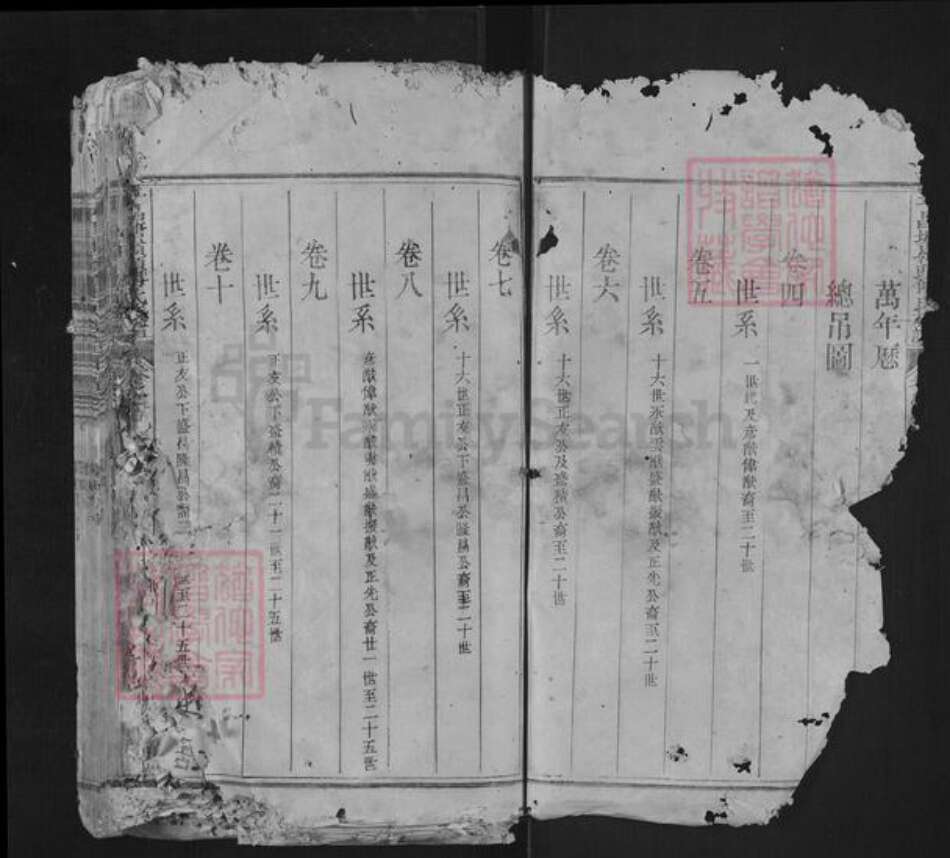 萬年曆
總吊圖
卷四
世系 一世起及彥猷偉猷裔至二十世
卷五
世系 十六世永猷 猷盛猷 猷及正先公裔至二十世
卷六
世系 十六世正友公及盛積公裔至二十世
卷七
世系 十六世正友公下盛昌公隆昌公裔至二十世
卷八
世系 彥猷偉猷永猷 猷盛猷 猷及正先公裔廿一世至二十五世
卷九
世系 正友公下盛積公裔二十一世至二十五世
卷十
世系 正友公下盛昌隆昌公裔二 至二十五世
FamilySearch